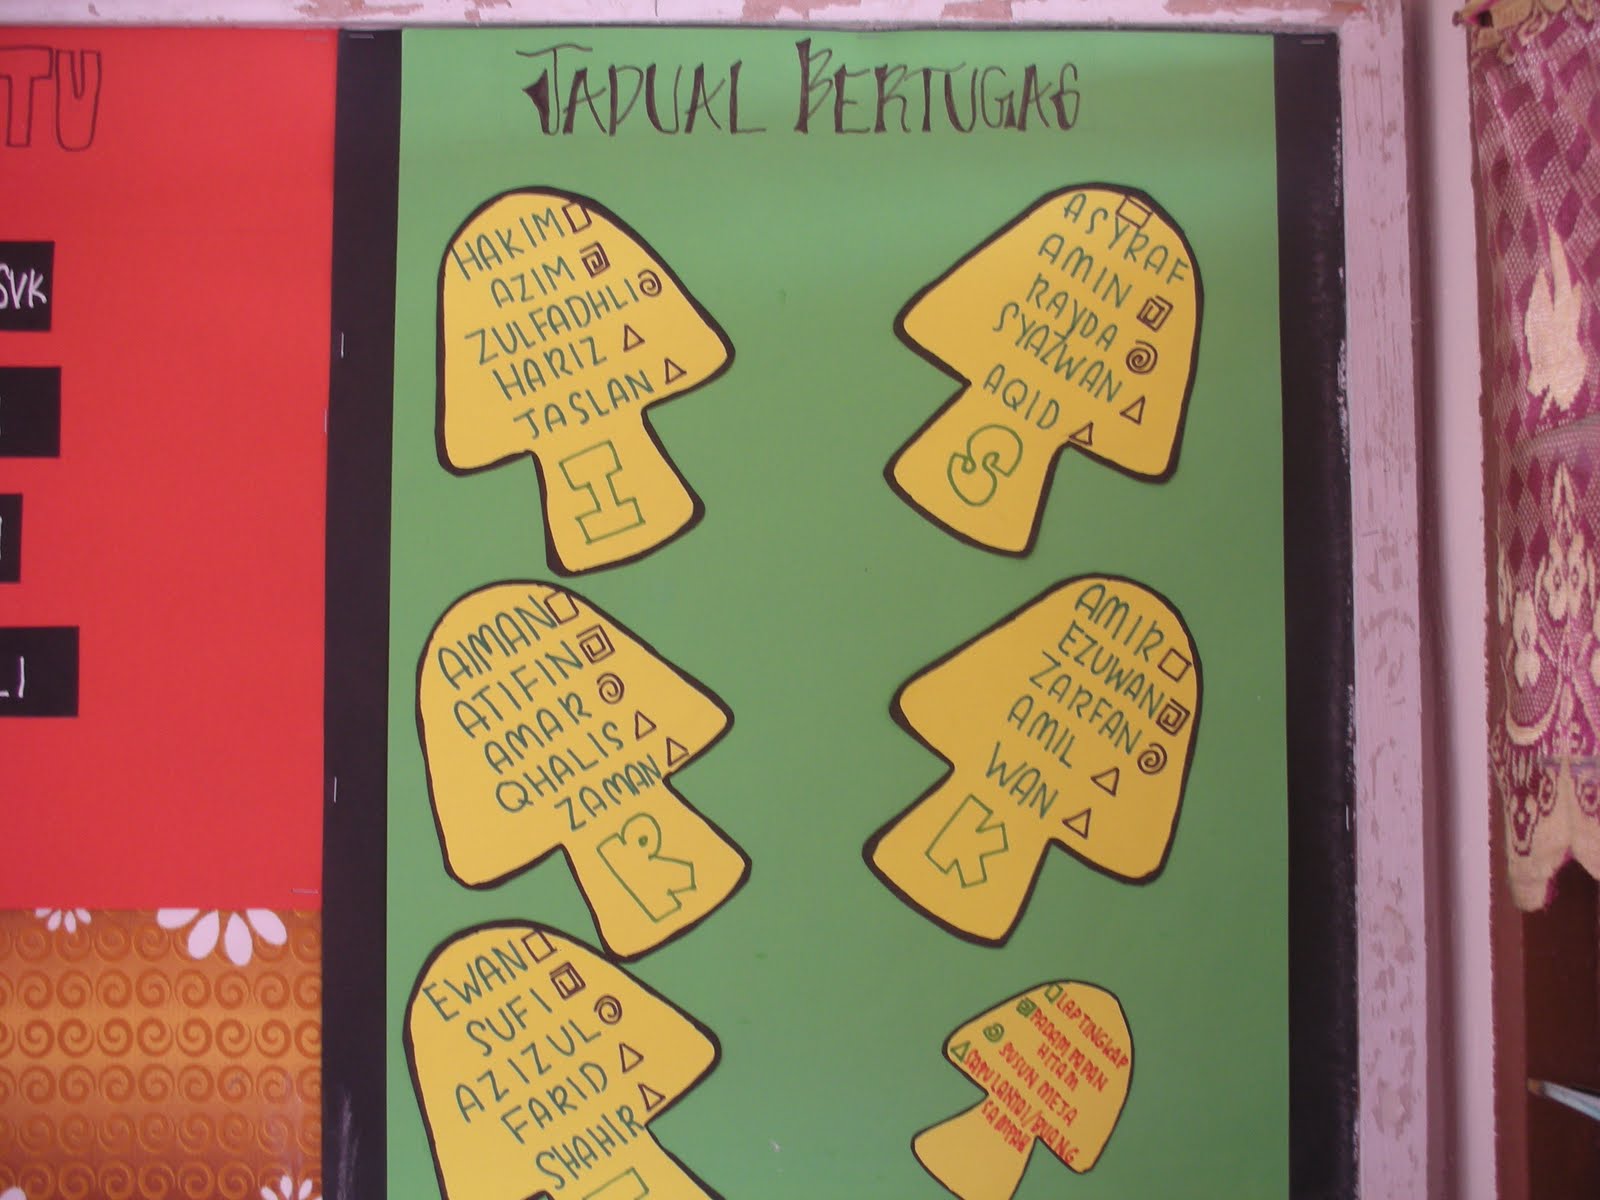 TU
SVK
LI
JADUAL BERTUGAS
HAKIM
AZIM
ZULFADHLI
HARIZ
JASLAN
I
ASYRAF
AMIN
RAYDA
SYAZWAN
AQID
S
AIMAN
ATIFIN
AMAR
QHALIS
ZAMAN
R
AMIR
EZUWAN
ZARFAN
AMIL
WAN
K
EWAN
SUFI
AZIZUL
FARID
SHAHIR
LAP TINGKAP
PADAM PAPAN
HITAM
SUSUN MEJA
SAPU LANTAI/BUANG
SAMPAH